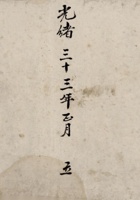 光緒三十三年正月 五